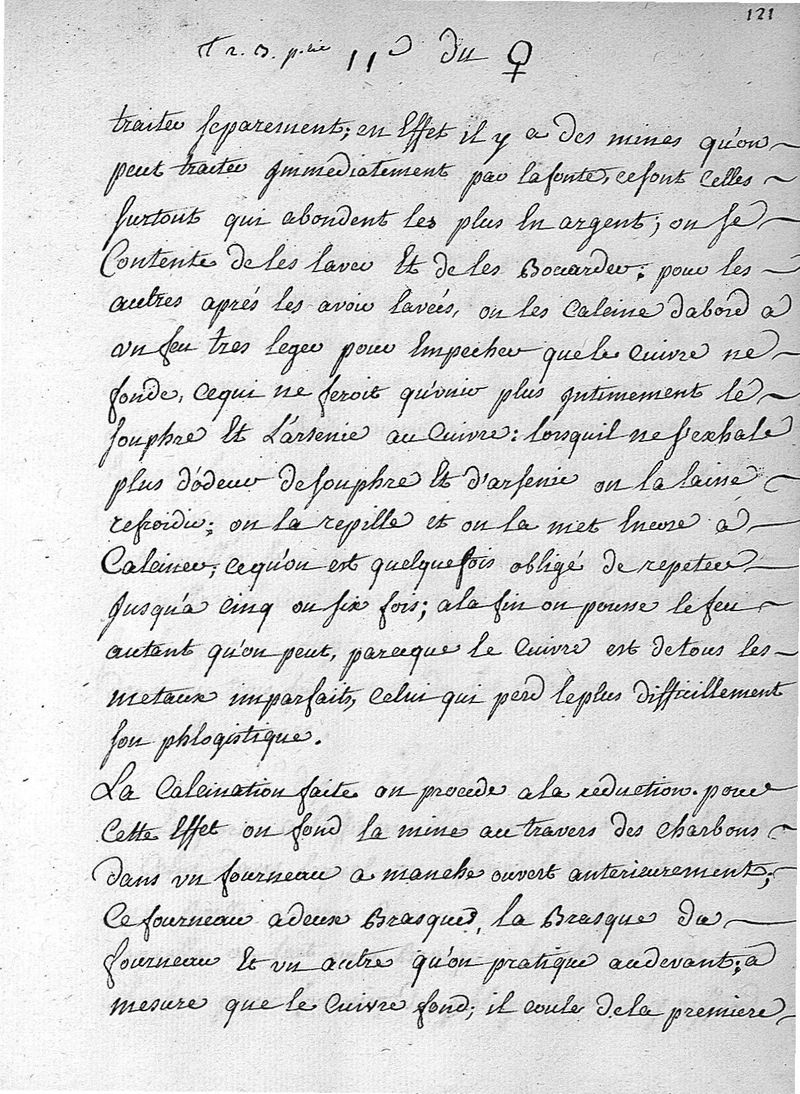 121
tr 2. 3. p.tie 11e du ♀
traiter separement; en Effet il y a des mines qu'on
peut traiter Jmmediatement par lafonte, cesont Celles
surtout qui abondent les plus En argent; on se
Contente de les laver Et de les Bocarder; pour les
autres aprés les avoir lavées, on les Calcine d'abord a
un feu tres leger pour Empecher que le Cuivre ne
fonde, cequi ne feroit qu'unir plus Jntimement le
souphre Et L'arsenic au Cuivre: lorsquil ne s'exhale
plus d'ódeur desouphre Et d'arsenic on la laisse
refroidir; on la repille et on la met Encore á
Calciner; cequ'on est quelquefois obligé de repeter
Jusqu'a cinq ou six fois; ala fin on pousse le feu
autant qu'on peut, parceque le Cuivre est detous les
metaux imparfaits, Celui qui perd leplus difficillement
son phlogistique.
La Calcination faite on procede a la reduction. pour
Cette Effet on fond la mine au travers des charbons
dans un fourneau a manche ouvert anterieurement;
Ce fourneau adeux Brasques, la Brasque du
fourneau Et un autre qu'on pratique audevant; a
mesure que le Cuivre fond; il coule dela premiere